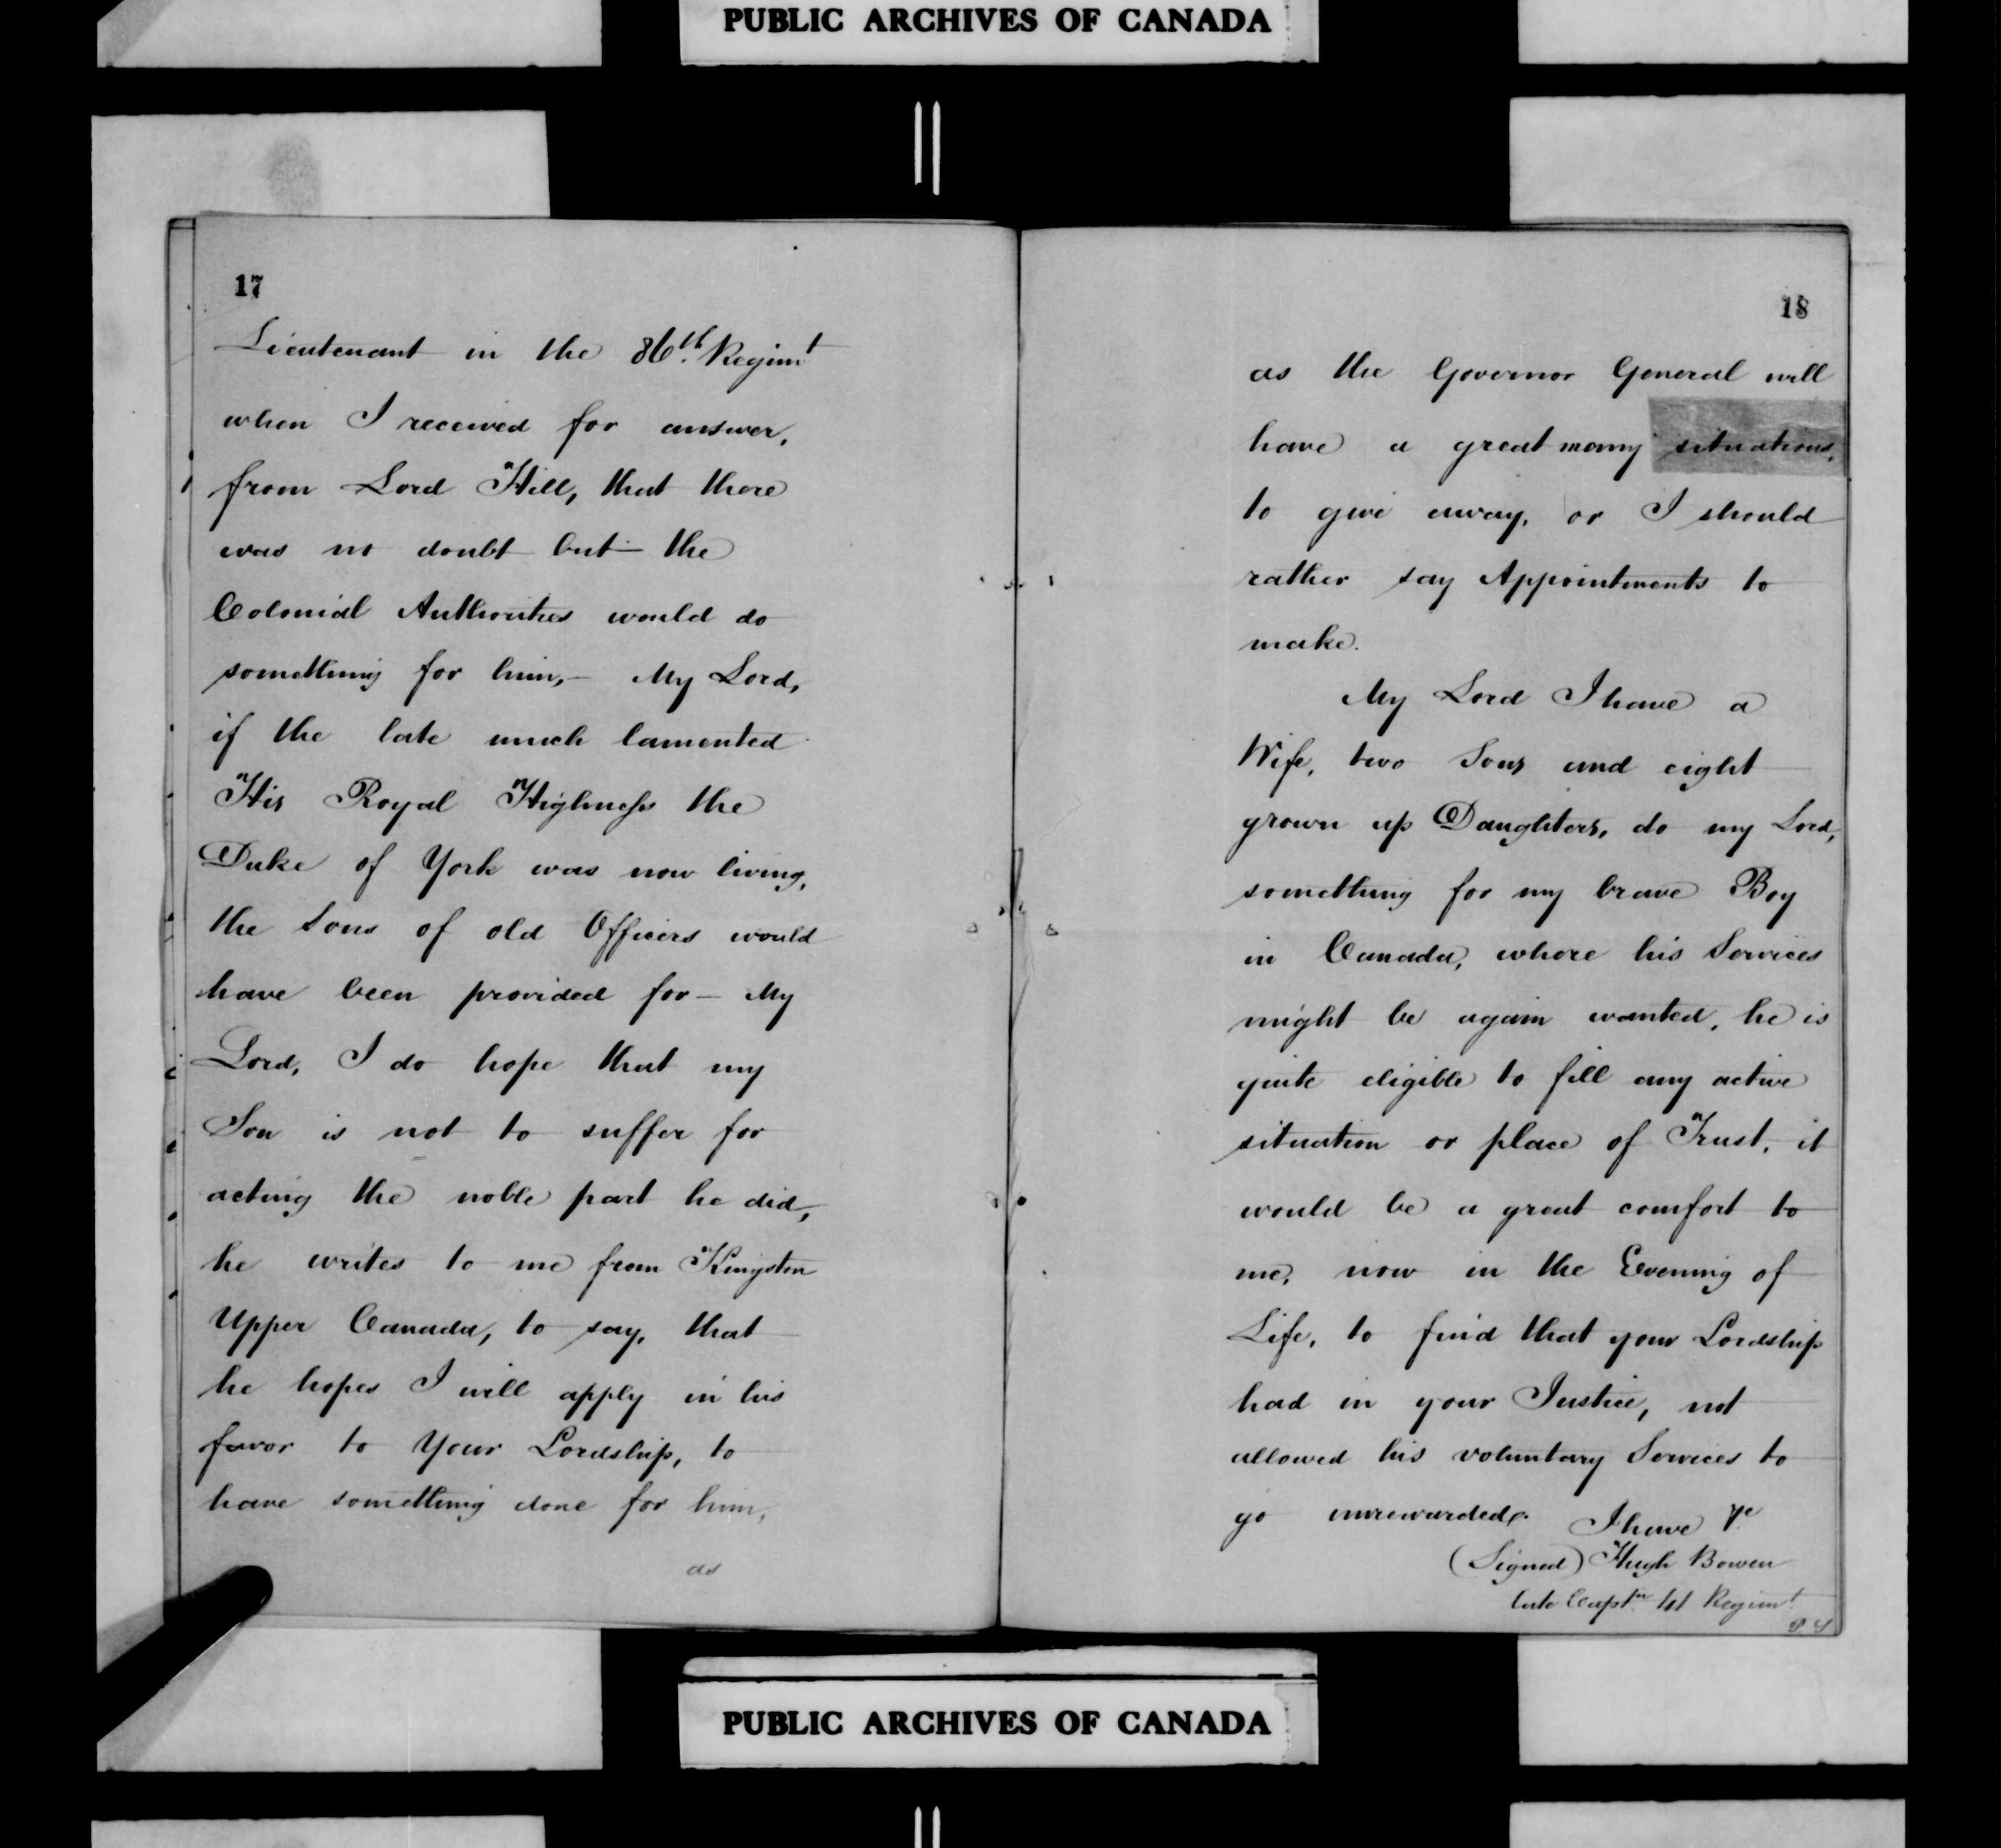 PUBLIC ARCHIVES OF CANADA
17
Lieutenant in the 86th. Regimt
when I received for answer,
from Lord Hill, that there
was no doubt but the
Colonial Authorities would do
something for him,- My Lord,
if the late much lamented
His Royal Highness the
Duke of York was now living,
the Sons of old Officers would
have been provided for- My
Lord, I do hope that my
Son is not to suffer for
acting the noble part he did,
he writes to me from Kingston
Upper Canada, to say, that
he hopes I will apply in his
favor to Your Lordship, to
have something done for him,
as
18
as the Governor General will
have a great many situations,
to give away, or I should
rather say Appointments to
make.
My Lord I have a
Wife, two Sons and eight
grown up Daughters, do my Lord,
something for my brave Boy
in Canada, where his Services
might be again wanted, he is
quite eligible to fill any active
situation or place of Trust, it
would be a great comfort to
me, now in the Evening of
Life, to find that your Lordship
had in your Justice, not
allowed his voluntary Services to
go unrewarded. I have &c
(Signed) Hugh Bowen
late Captn. Regimt.
P S
PUBLIC ARCHIVES OF CANADA